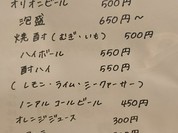 オリオンビール 500円
泡盛 650円〜
焼酎(むぎ・いも) 500円
ハイボール 550円
酎ハイ 550円
(レモン・ライム・シークァーサー)
ノンアルコールビール 450円
オレンジジュース 300円